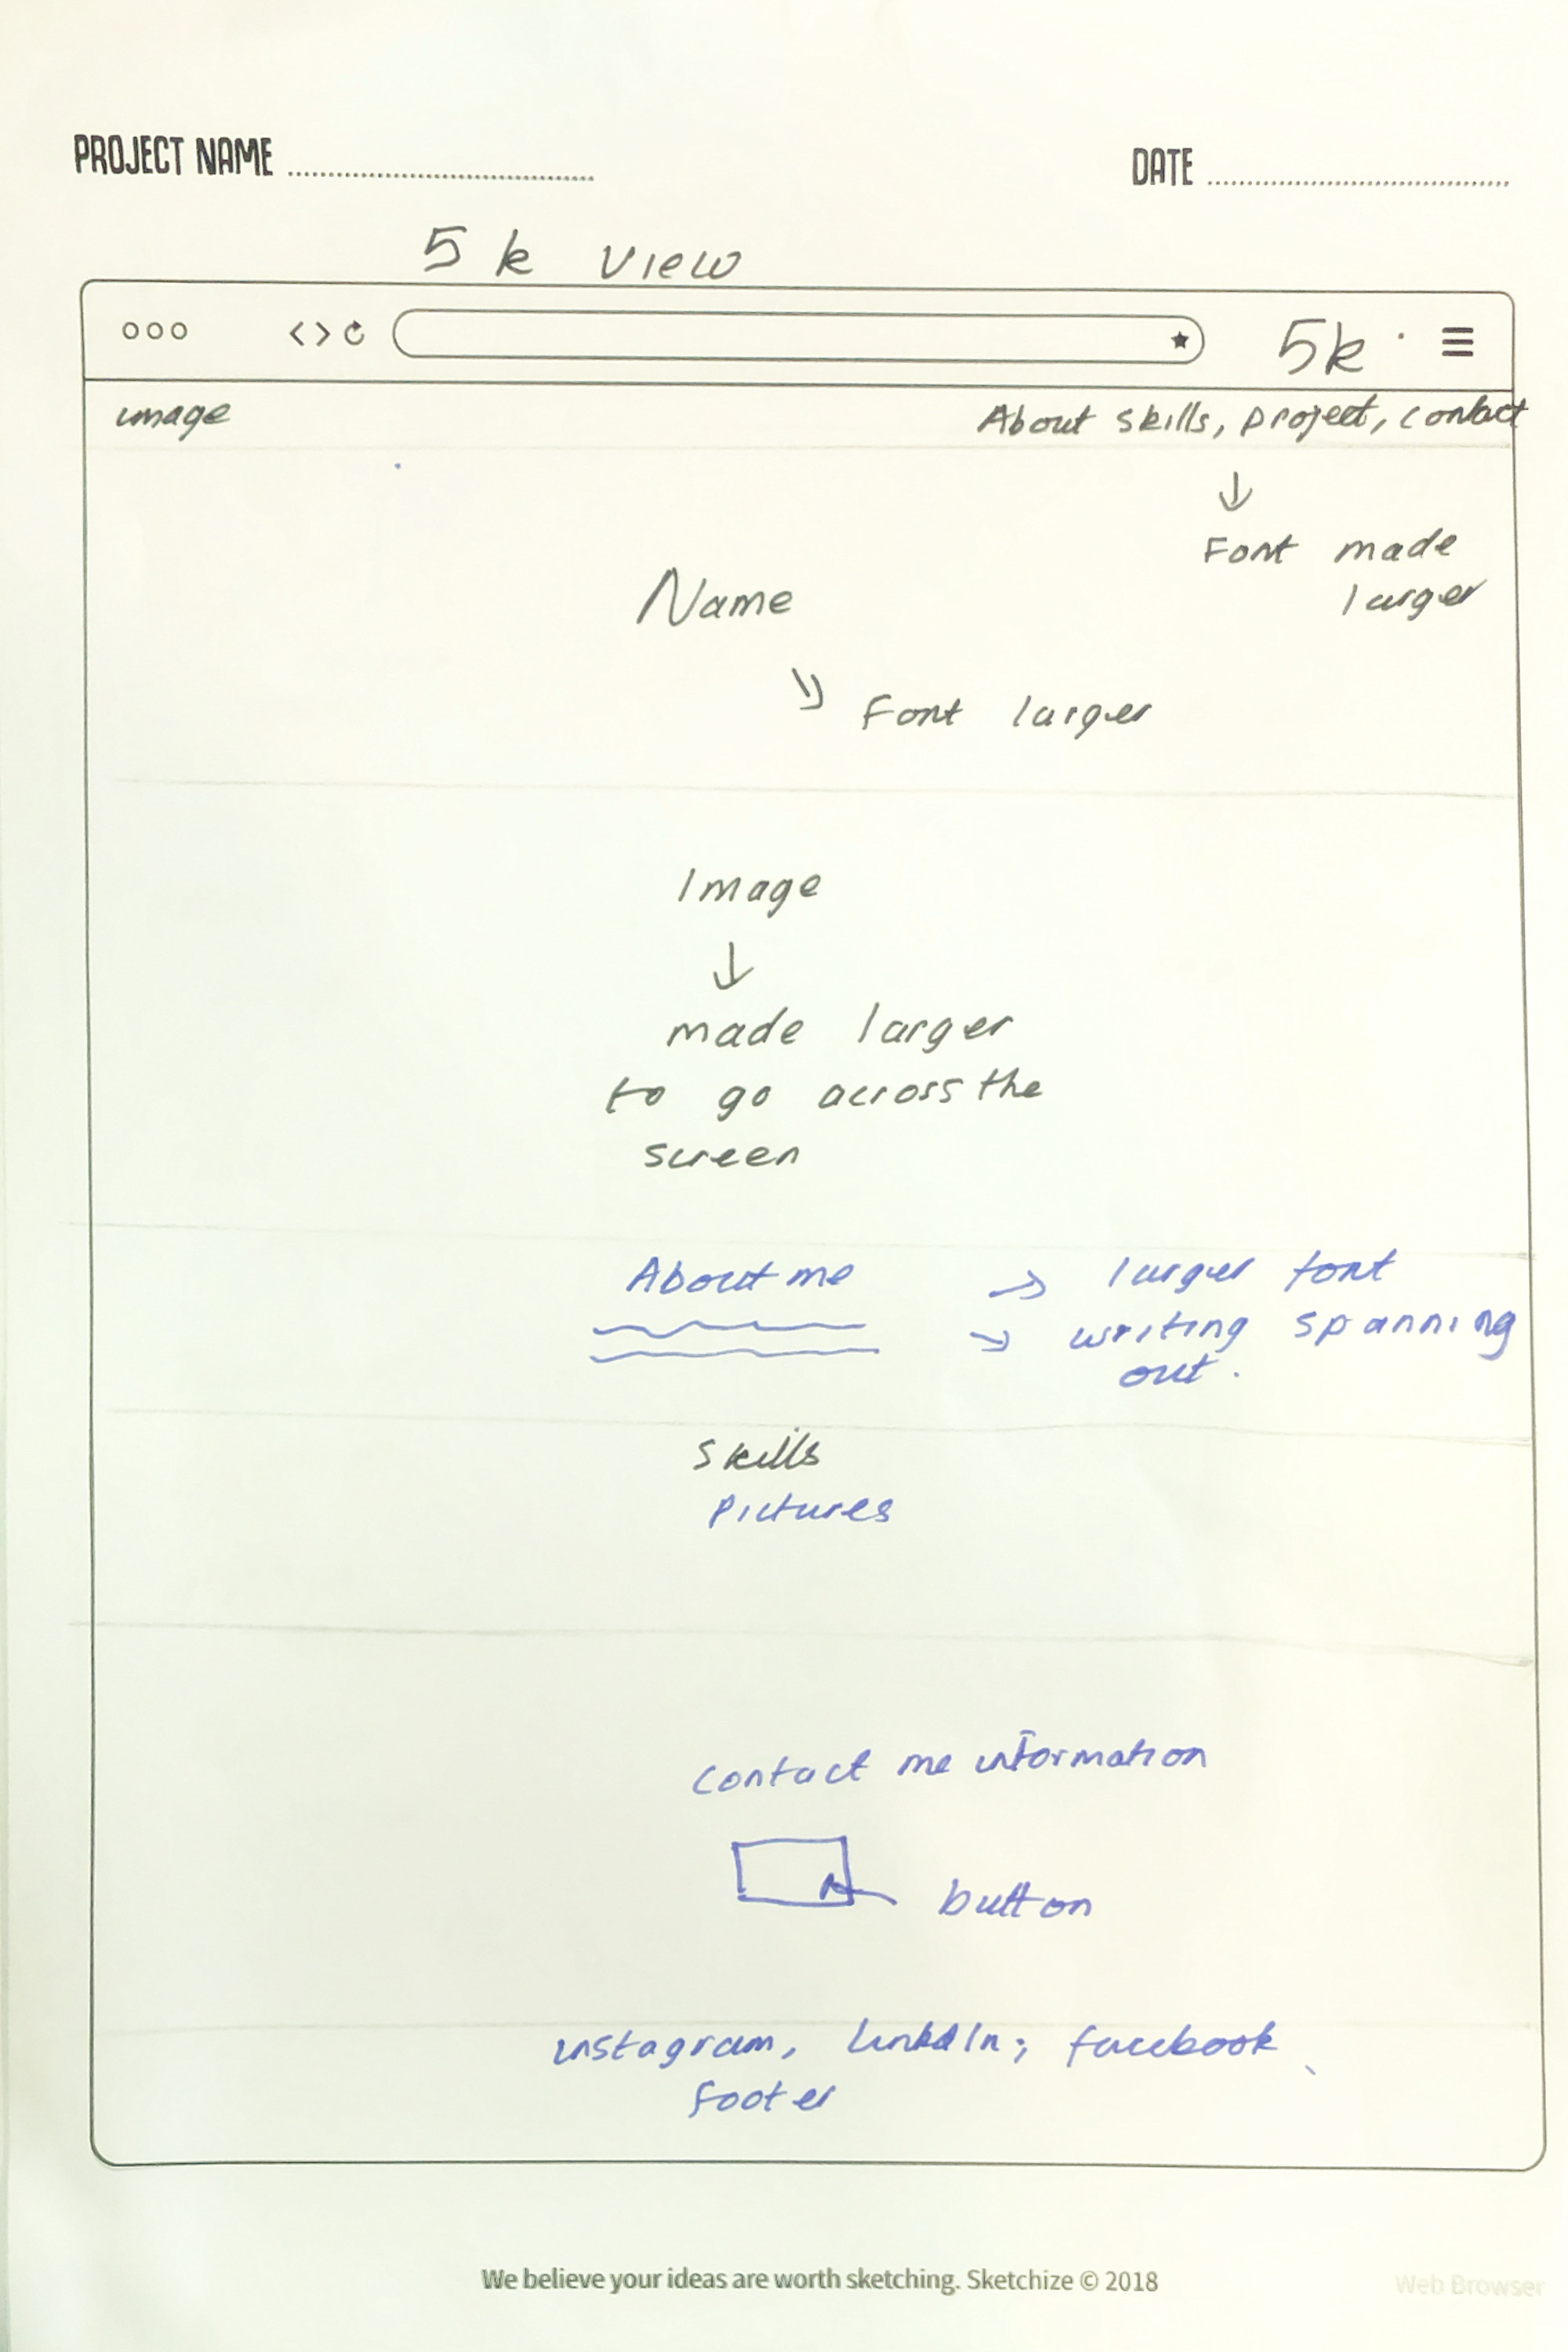 PROJECT NAME
DATE
5k view
5k
image
About skills, project, contact
Font made
larger
Name
Font larger
Image
made larger
to go across the
screen
About me
larger font
writing spanning
out.
Skills
Pictures
Contact me information
button
instagram, linkdIn; facebook
footer
We believe your ideas are worth sketching. Sketchize © 2018
Web Browser